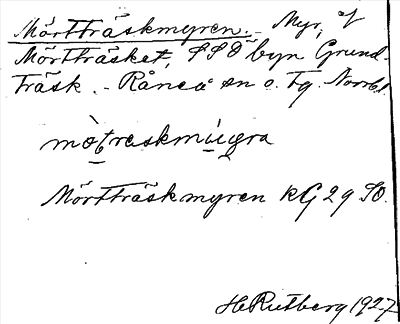 Mörtträskmyren. - Myr, i
Mörtträsket, SSO byn Grund-
träsk. - Råneå sn o. tg. Norrb.
Mörtträskmyren RG 29 SO.
H Rutberg 1927